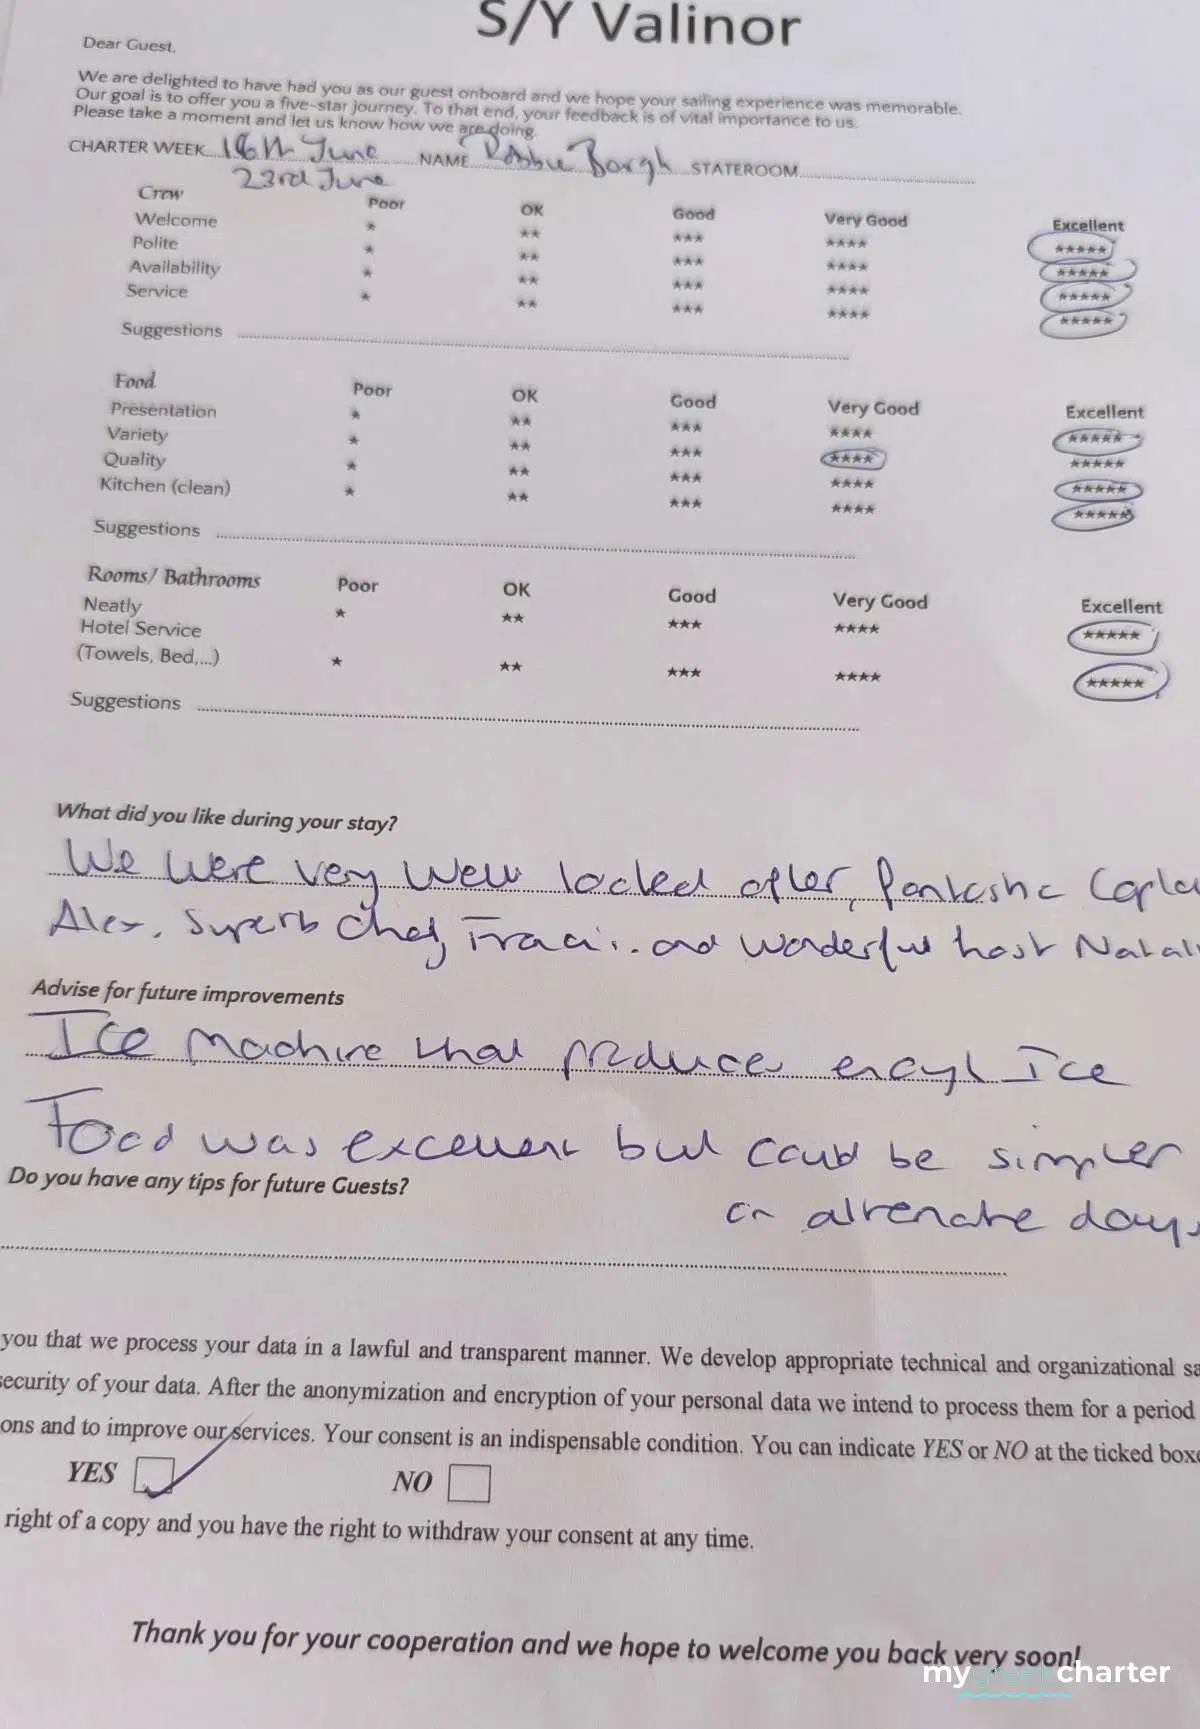 S/Y Valinor
Dear Guest,
We are delighted to have had you as our guest onboard and we hope your sailing experience was memorable.
Our goal is to offer you a five-star journey. To that end, your feedback is of vital importance to us.
Please take a moment and let us know how we are doing.
CHARTER WEEK 16th June NAME Robbie Borgh STATEROOM
23rd June
Crew Poor OK Good Very Good Excellent
Welcome * ** *** **** *****
Polite * ** *** **** *****
Availability * ** *** **** *****
Service * ** *** **** *****
Suggestions
Food Poor OK Good Very Good Excellent
Presentation * ** *** **** *****
Variety * ** *** **** *****
Quality * ** *** **** *****
Kitchen (clean) * ** *** **** *****
Suggestions
Rooms/ Bathrooms Poor OK Good Very Good Excellent
Neatly * ** *** **** *****
Hotel Service
(Towels, Bed,...) * ** *** **** *****
Suggestions
What did you like during your stay?
We were very well looked after, fantastic Capta
Alex, Superb Chef, and wonderful host Natali
Advise for future improvements
Ice machine that produces enough Ice
Food was excellent but could be simpler
on alternate days
Do you have any tips for future Guests?
you that we process your data in a lawful and transparent manner. We develop appropriate technical and organizational sa
security of your data. After the anonymization and encryption of your personal data we intend to process them for a period
ons and to improve our services. Your consent is an indispensable condition. You can indicate YES or NO at the ticked boxe
YES NO
right of a copy and you have the right to withdraw your consent at any time.
Thank you for your cooperation and we hope to welcome you back very soon!
my greek charter